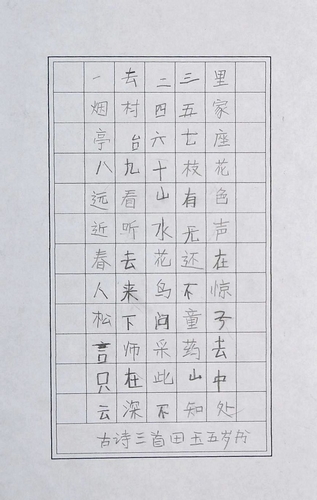 一去二三里
烟村四五家
亭台六七座
八九十枝花
远看山有色
近听水无声
春去花还在
人来鸟不惊
松下问童子
言师采药去
只在此山中
云深不知处
古诗三首田玉五岁书